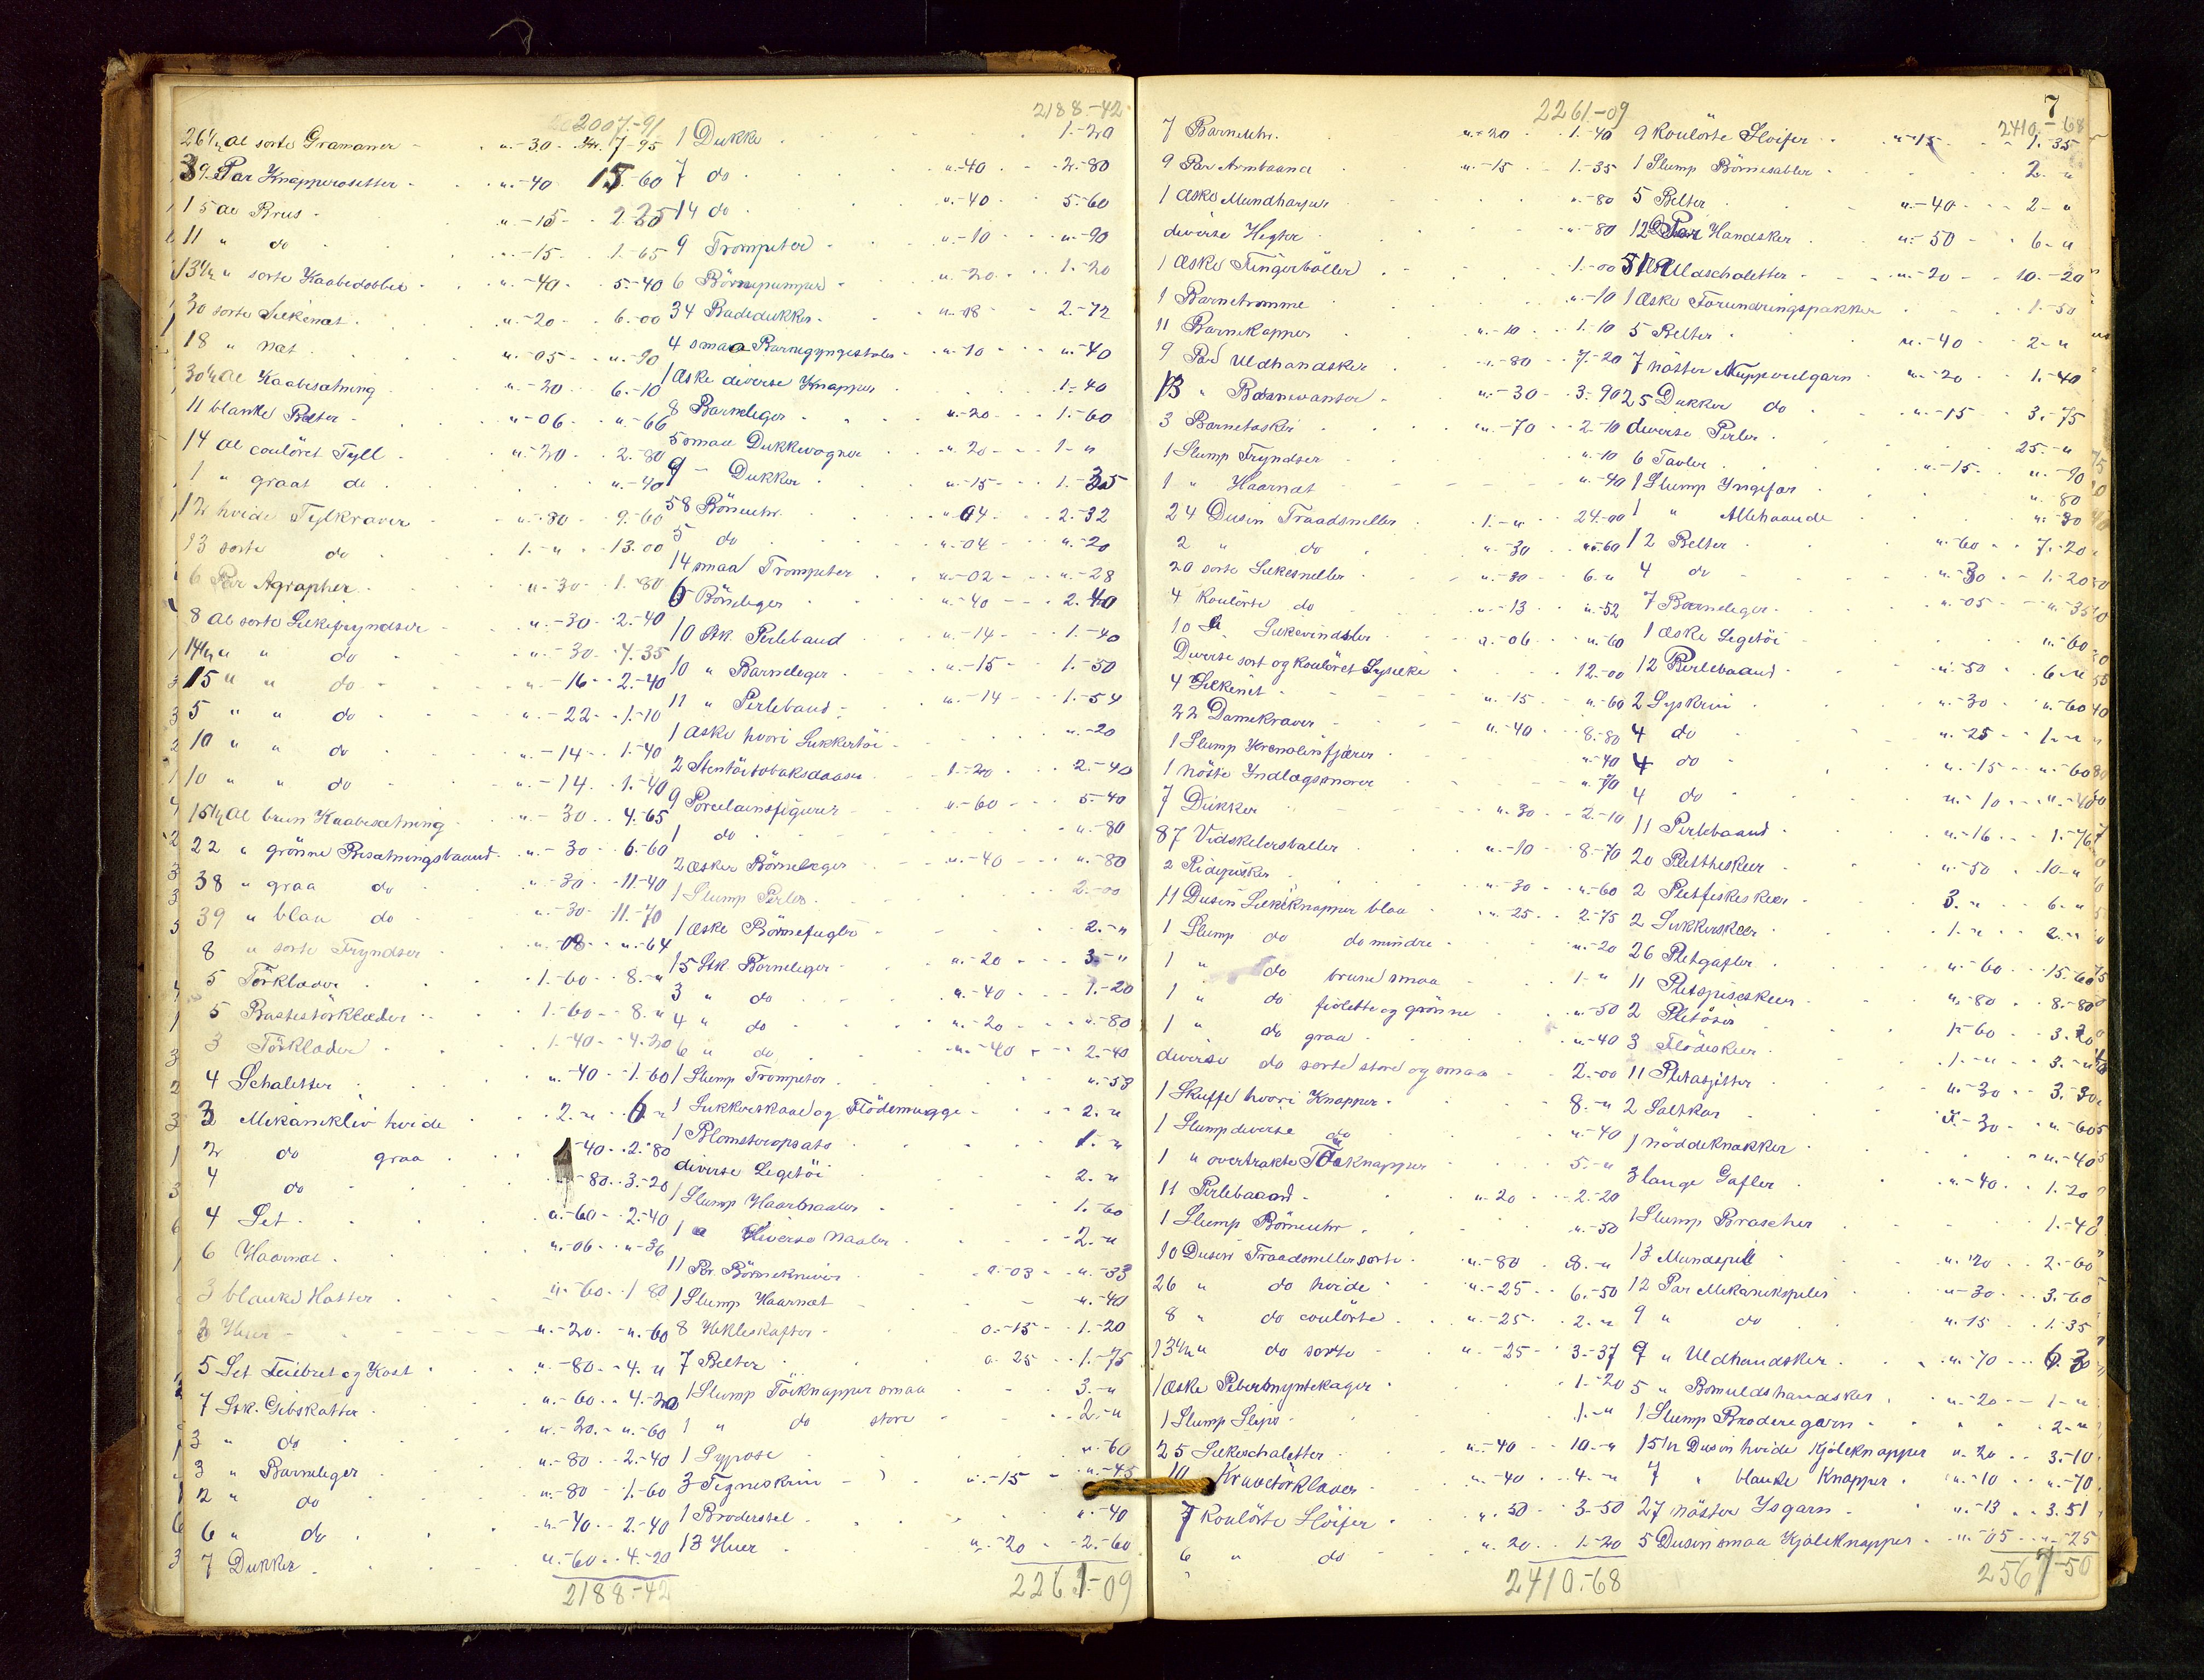 2007.-91
26½ Al sorte Gramaner - u.-30 - Kr. 7-95
39 Par Knapperosetter - u.-40 15.-60
15 Al Brus - u.-15 - 2-25
11 " do - u.-15 - 1.-65
13½ " sorte Kaabedobber - u.-40 - 5.-40
30 sorte Silkenæt - u.-20 - 6.-00
18 " næt - u.-05 - u.-90
30½ Al Kaabesætning - u.-20 - 6.-10
11 blanke Belter - u-06 - u.-66
14 Al coulöret Tyll - u.-20 - 2.-80
1 " graat do - u.-40
12 hvide Tylkraver - u.-80 - 9.-60
13 sorte do - 1.-u - 13.00
6 Par Agrapher - u.-30 - 1.-80
8 Al sorte Silkefryndser - u.-30 - 2.-40
14½ " " do - u.-30 - 4.-35
15 " " do - u.-16 - 2.-40
5 " " do - u.-22 - 1.-10
10 " " do - u.-14 - 1.-40
10 " " do - u.-14 - 1.-40
15½ Al brun Kaabesætning - u.-30 - 4.-65
22 " grönne Besætningsbaand - u.-30 - 6.-60
38 " graa do - u.-30 - 11.-40
39 " blaa do - u.-30 - 11.-70
8 " sorte Fryndser - u.-08 - u.-64
5 Törklæder - 1.-60 - 8.-u
5 Bastestörklæder - 1.-60 - 8.-u
3 Törklæder - 1.-40 - 4.20
4 Schaletter - u.-40 - 1.-60
3 Mekanikliv hvide - 2.-u - 6-u
2 do graa - 1-40 - 2.-80
4 do - u-80 - 3.-20
4 Set - u.-60 - 2.-40
6 Haarnæt - u.-06 - u-36
3 blanke Hatter - u.-60 - 1 80
3 Huer - u.-20 - u.-60
5 Set Feiebret og Kost - u.-80 - 4.-u
7 Stk. Gibskatter - u.-60 - 4.-20
3 " do - u.-20 - u.-60
3 " Barneleger - u.-80 - 2.-40
2 " do - u.-80 - 1.-60
6 " do - u.-40 - 2.-40
7 Dukker - u.-60 - 4.-20
2188.-42
2188.-42
1 Dukke - 1.-20
7 do - u.-40 - 2.-80
14 do - u.-40 - 5.-60
9 Trompeter - u.-10 - u.-90
6 Börnepumper - u.-20 - 1.-20
34 Badedukker - u.-08 - 2.-72
4 smaa Barnegyngestoler - u.-10 - u.-40
1 Æske diverse Knapper - 1.-40
8 Barneleger - u.-20 - 1.-60
5 smaa Dukkevogner - u.20 - 1-u
9 - Dukker - u.-15 - 1.-35
58 Börneuhr - u 04 - 2.-32
5 do - u.-04 - u.-20
14 smaa Trompeter - u.-02 - u.-28
6 Börneleger - u.-40 - 2.40
10 Stk. Perlebaand - u.-14 - 1.-40
10 " Barneleger - u.-15 - 1.-50
11 " Perlebaand - u.-14 - 1.-54
1 Æske hvori Sukkertöi - u.-20
2 Stentöitobaksdaaser - 1.-20 - 2.-40
9 Porcelainsfigurer - u.-60 - 5.-40
1 do - u.-80
2 Æsker Börneleger - u.-40 - u.-80
1 Slump Perler - 2.-00
1 Æske Börnefugle - 2.-u
15 Stk. Börneleger - u.-20 - 3.-u
3 " do - u.-40 - 1.-20
4 " do - u.-20 - u.-80
6 " do - u.-40 - 2.-40
1 Slump Trompeter - u.-53
1 Sukkerskaal og Flödemugge - 2.-u
1 Blomsteropsats - 1.-u
diverse Legetöi - 2.-u
1 Slump Haarnaaler - 1.-60
1 " diverse Naaler - 2.-u
11 Pr. Börnekniver - u.-03 - u.-33
1 Slump Haarnæt - u.-40
8 Hekleskafter - 0.-15 - 1.-20
7 Belter - u 25 - 1.-75
1 Slump Töiknapper smaa - 3.-u
1 " do store - 2.-u
1 Sypose - u.-60
3 Tegneskrin - u.-15 - u.-45
1 Broderstel - u.-40
13 Huer - u.-20 - 2.-60
2261-09
2261.-09
7 Barneuhr. - u.-20 - 1.-40
9 Par Armbaand - u.-15 - 1.-35
1 Æske Mundharper - u.-80
diverse Hegter - u.-80
1 Æske Fingerböller - 1.-00
1 Barnetromme - u.-10
11 Barnekapper - u.-10 - 1.-10
9 Par Uldhandsker - u.-80 - 7.-20
13 " Barnevanter - u.-30 - 3.-90
3 Barnetasker - u.-70 - 2.-10
1 Slump Fryndser - u.-10
1 " Haarnæt - u.-40
24 Dusin Traadsneller - 1.-u - 24.-00
2 " do - u.-30 - u.-60
20 sorte Silkesneller - u.-30 - 6.-u
4 Koulörte do - u.-13 - u.-52
10 Silkevindsler - u.-06 - u.-60
Diverse sort og koulöret Sysilke - 12.-00
4 Silkenet - u.-15 - u.-60
22 Damekraver - u.-40 - 8.-80
1 Slump Krenolinfjærer - u.-40
1 Nöste Indlægssnorer - u.-70
7 Dukker - u.30 - 2.-10
87 Vidskelersballer - u.-10 - 8.-70
2 Ridepisker - u.-30 - u.-60
11 Dusin Silkeknapper blaa - u.-25 - 2.-75
1 Slump do do mindre - u.-20
1 " do brune smaa - 1.-u
1 " do fiolette og grönne - u.-50
1 " do graa - u.-40
diverse do sorte store og smaa - 2.-00
1 Skuffe hvori Knapper - 8.-u
1 Slump diverse do - u.-40
1 " overtrakte Töiknapper - 5.-u
11 Perlebaaand - u.20 - 2.-20
1 Slump Börneuhr - u.-50
10 Dusin Traadsneller sorte - u.-80 - 8.-u
26 " do hvide - u.-25 - 6.-50
8 " do coulörte - u.-25 - 2.-u
13½ " do sorte - u.-25 - 3.-37
1 Æske Pebermyntekager - 1.-20
1 Slump Slips - 1.-u
25 Silkeschaletter - u.-40 - 10.-u
10 Kravetörklæder - u.-40 - 4.-u
7 Koulörte Slöifer - u.50 - 3-50
6 " do - u.20 - 1.-20
2410.-68
7
2410.-68
9 Koulörte Slöifer - u-15 - 1.35
1 Slump Börnesabler - 2.-u
5 Belter - u.-40 - 2-u
12 Par Handsker - u.-50 - 6-u
51 Uldschaletter - u.-20 - 10.-20
1 Æske Forundringspakker - 1.-50
5 Belter - u.-40 - 2-u
7 Nöster Nuppereelgarn - u.-20 - 1.-40
25 Dukker do - u.-15 - 3.-75
diverse Perler - 25.-u
6 Tavler - u.-15 - u.-90
1 Slump Yngefær - u.80
1 " Allehaande - u.-30
12 Belter - u.-60 - 7.-20
4 do - u.-30 - 1.-20
7 Barneleger - u.-05 - u.-35
1 Æske Legetöi - u.-60
12 Perlebaand - u.50 - 6-u
2 Syskrin - u.-30 - u.-60
4 do - u.-25 - 1.-u
4 do - u.-15 - u.-60
4 do - u.-10 - u.-40
11 Perlebaand - u.-16 - 1.-76
20 Plettheskeer - u.-50 - 10-u
2 Pletfiskeskeer - 3.-u - 6.-u
2 Sukkerskeer - 1.-u - 2.-u
26 Pletgafler - u.-60 - 15.-60
11 Pletspiseskeer - u.-80 - 8.-80
2 Pletöser - 1-60 - 3.20
3 Flödeskeer - 1.-u - 3.-u
11 Pletasjetter - u.-30 - 3.30
2 Saltkar - u.-30 - u.-60
1 Nöddeknækker - u.-40
3 lange Gafler - u.-40 - 1.20
1 Slump Broscher - 1.-40
13 Mundspil - u.20 - 2.-60
12 Par Mekanikspiler - u-30 - 3.-60
9 " do - u.15 - 1.35
9 " Uldhandsker - u.-70 - 6.3
5 " Bomuldshandsker - u.-20 - 1-u
1 Slump Broderegarn - 2-u
15½ Dusin hvide Kjoleknapper u.20 - 3.-10
7 " blanke Knapper - u.-10 - u.-70
27 Nöster Isgarn - u.-13 - 3.51
5 Dusin smaa Kjoleknapper - u.05 - u.-25
2567-50